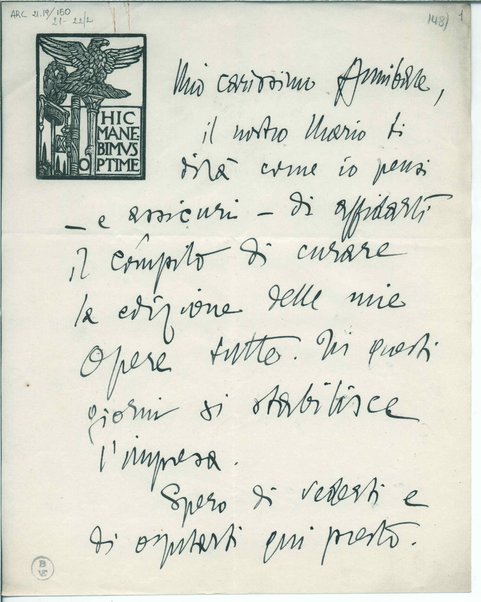 ARC 21.19/150
21-22/2
148) 1
HIC
MANE
BIMVS
OPTIME
Mio carissimo Annibale,
il nostro Mario ti
dirà come io pensi
– e assicuri – di affidarti
il cómpito di curare
la edizione delle mie
Opere tutte. In questi
giorni si stabilisce
l'impresa.
Spero di vederti e
di ospitarti qui presto.
B
VE